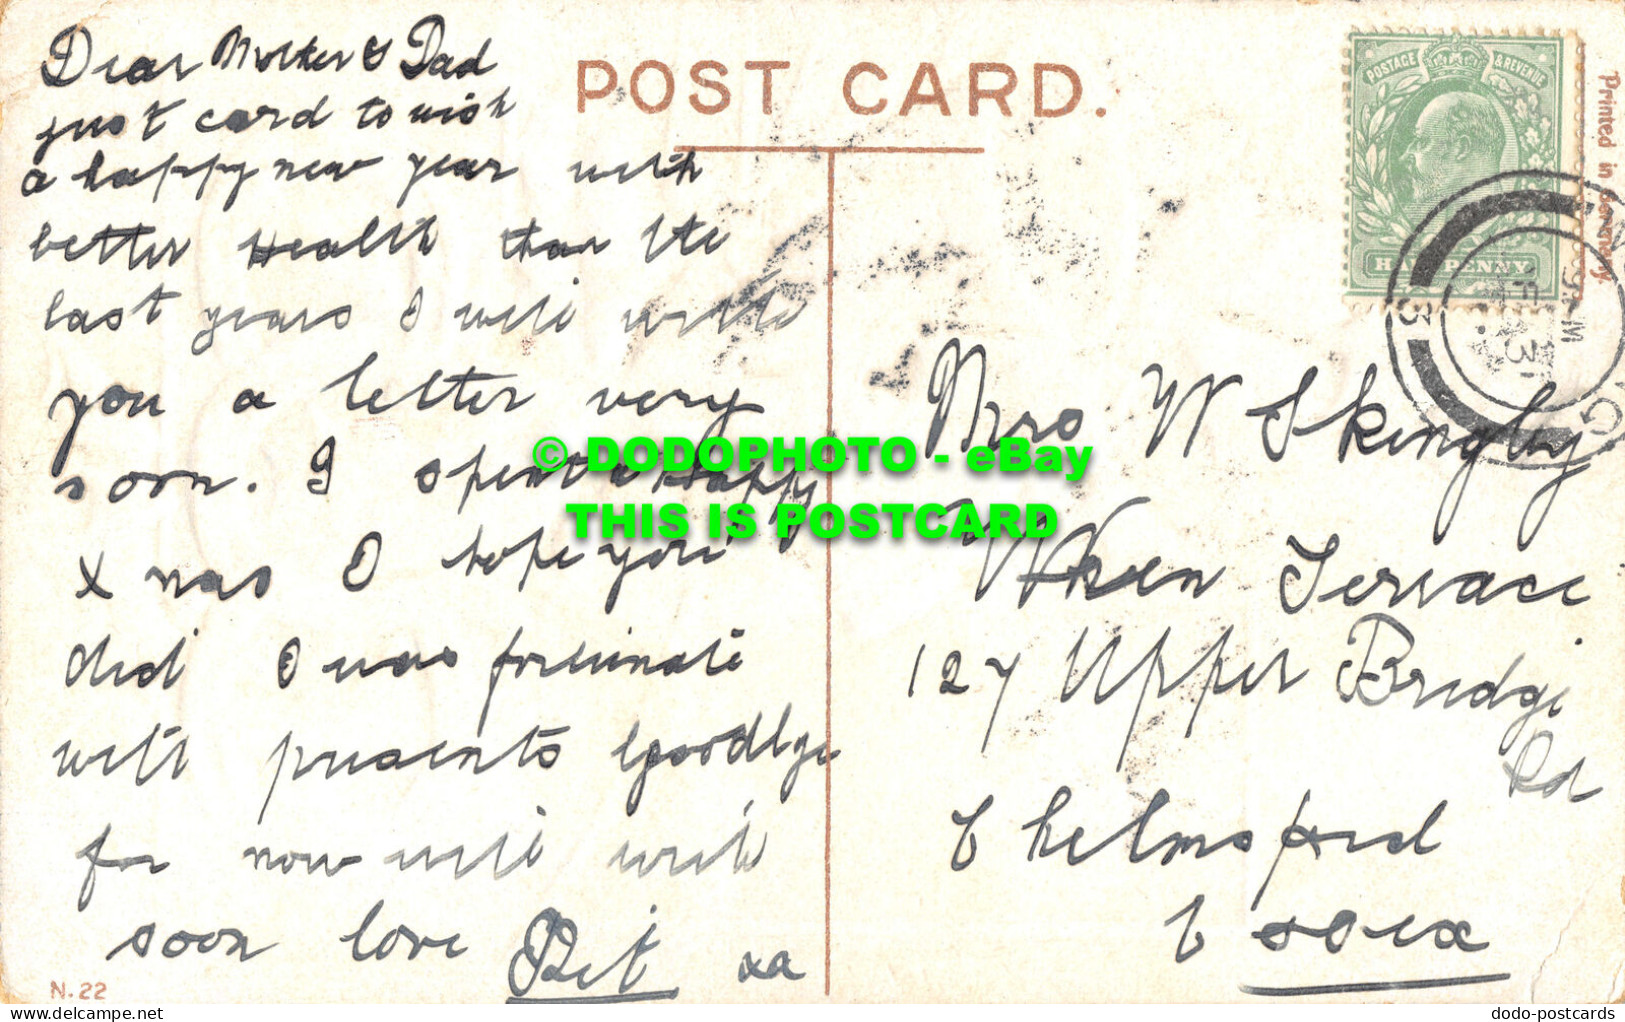 Dear Mother & Dad
just card to wish
a happy new year with
better Health than the
last years I will write
you a letter very
soon. I spent a Happy
xmas I hope you
did I was fortunate
with presents goodbye
for now will write
soon love
xa
N.22
POST CARD.
POSTAGE & REVENUE
HALFPENNY
Printed in Germany
Mrs W Skingley
Terrace
127 Upper Bridge
Rd
Chelmsford
Essex
© DODOPHOTO - eBay
THIS IS POSTCARD
dodo-postcards